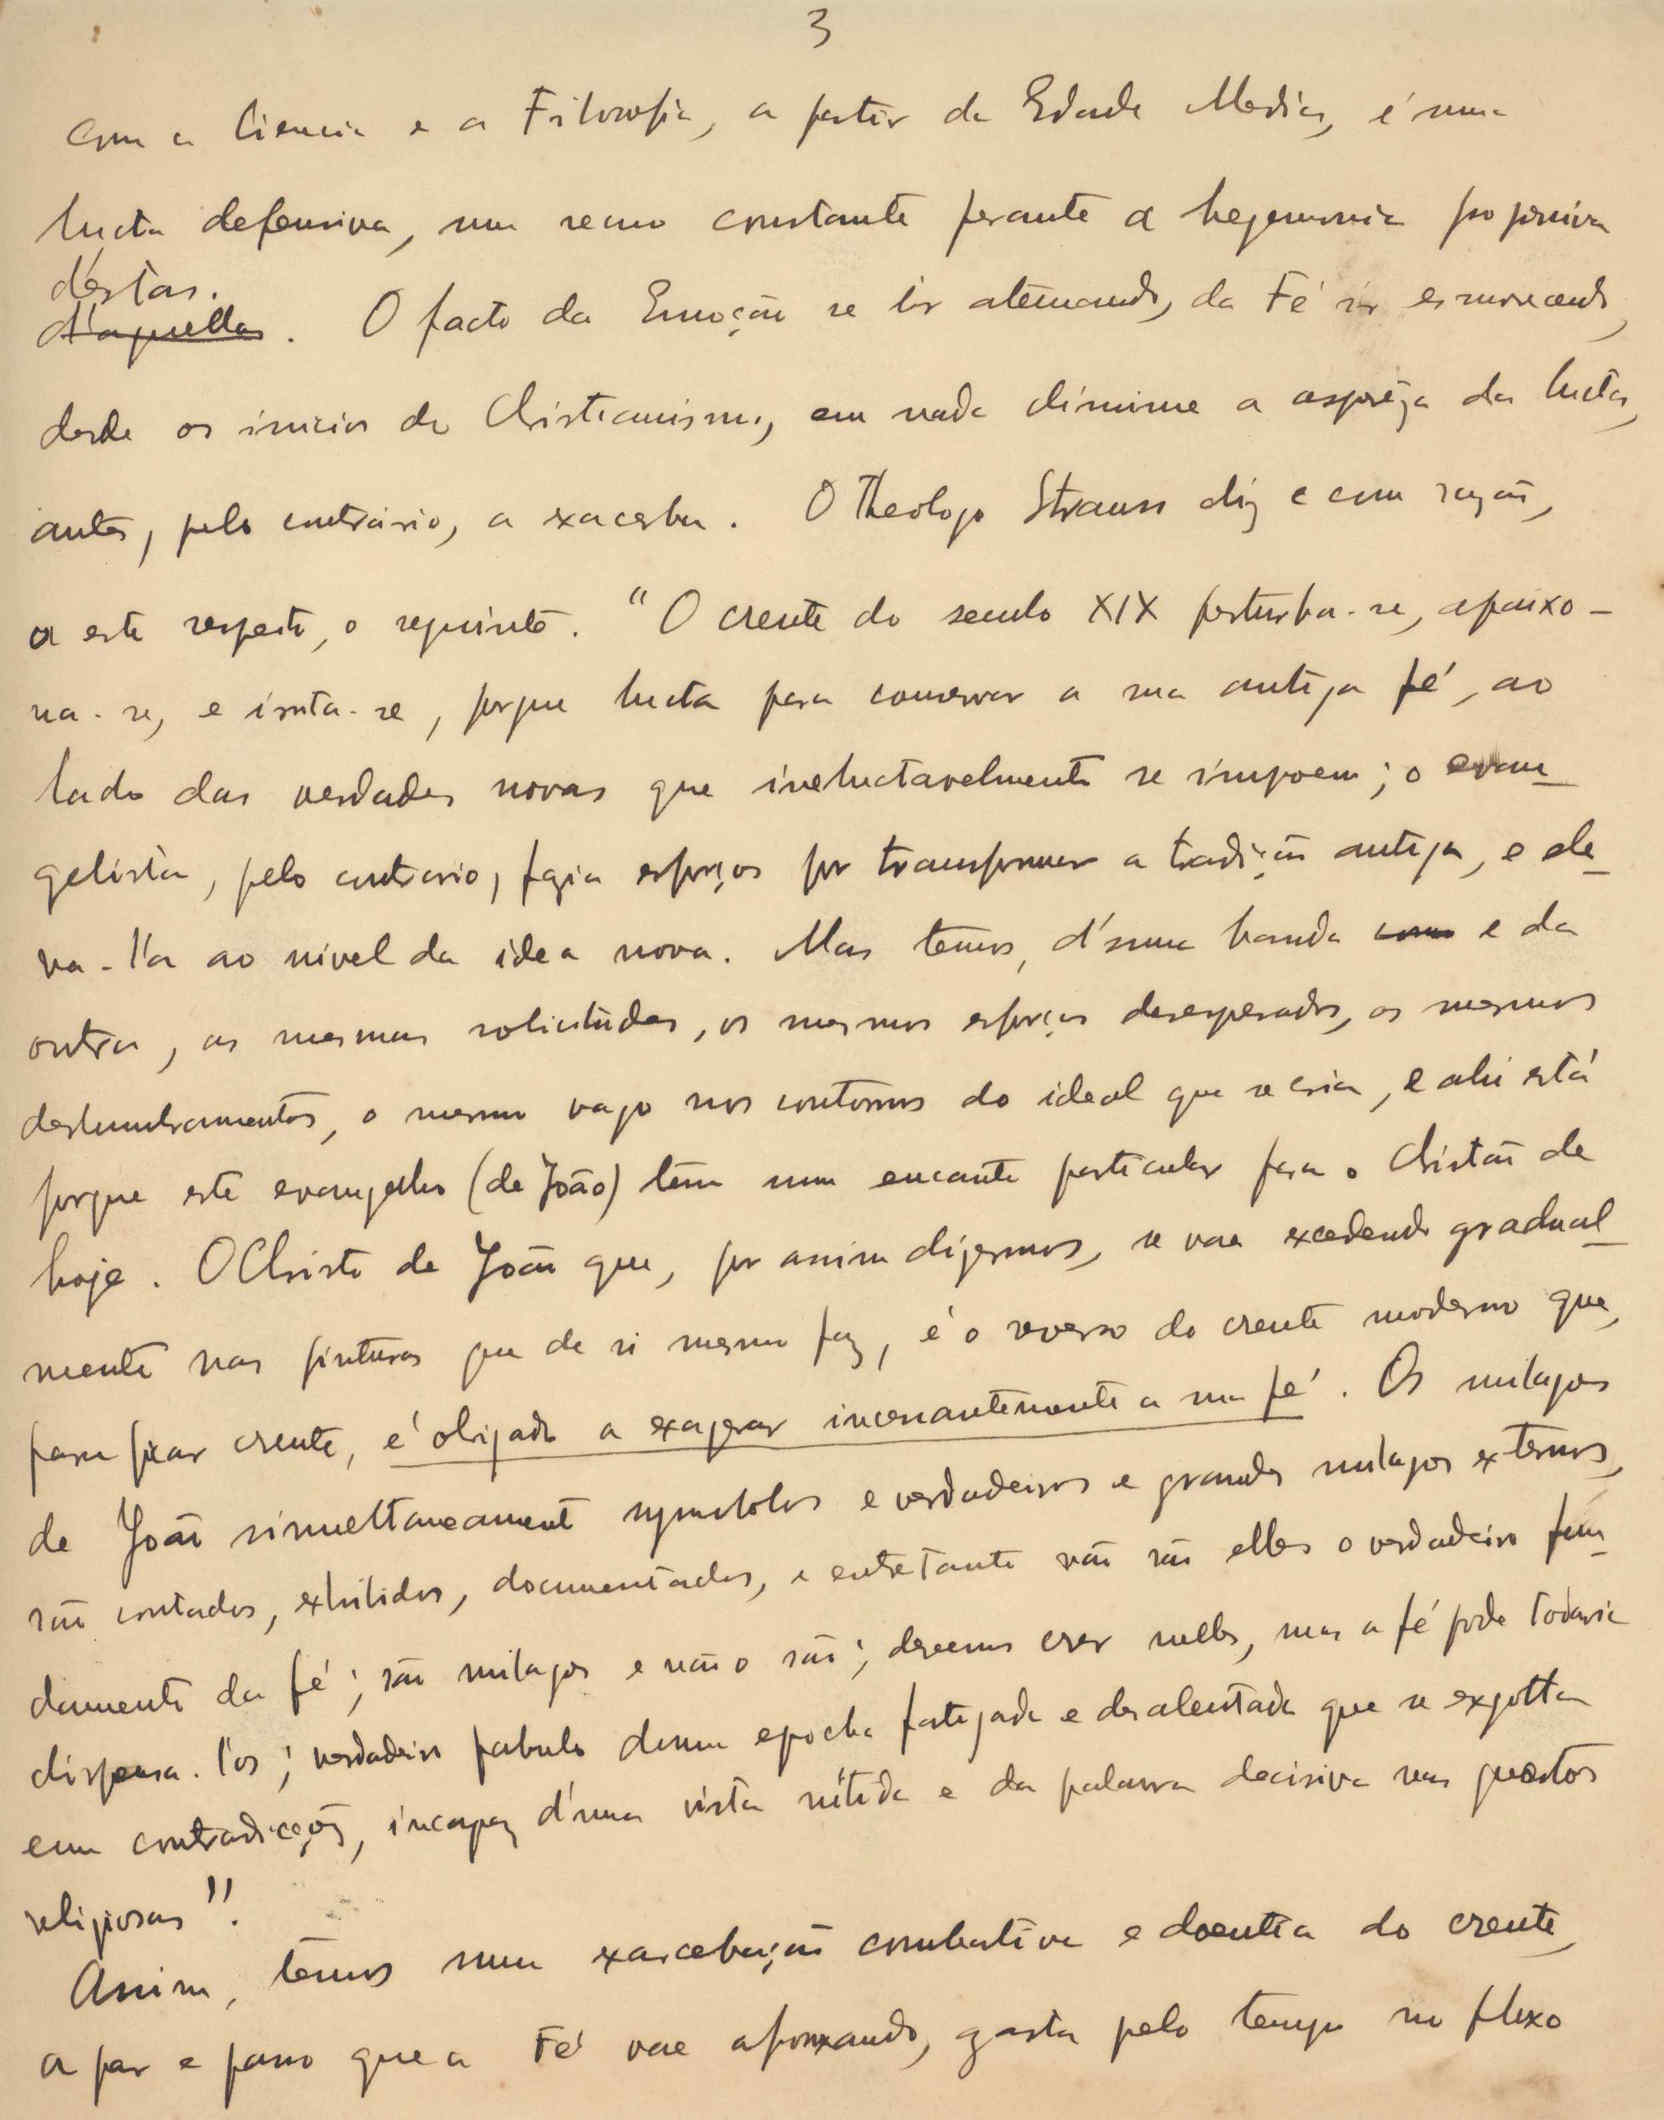 3
com a Ciencia e a Filosofia, a partir da Edade Media, é uma
lucta defensiva, um recuo constante perante a hegemonia progressiva
d'estas.
d'aquellas. O facto da Emoção se ir atenuando, da Fé ir esmorecendo,
desde os inicios do Christianismo, em nada diminue a aspreza da lucta,
antes, pelo contrário, a exacerba. O Theologo Strauss diz e com razão,
a este respeito, o seguinte. "O crente do seculo XIX perturba-se, apaixo-
na-se, e irrita-se, porque lucta para conservar a sua antiga fé, ao
lado das verdades novas que ineluctavelmente se impoem; o evan-
gelista, pelo contrario, fazia esforços por transformar a tradição antiga, e ele-
va-l'a ao nivel da idea nova. Mas temos, d'uma banda como e da
outra, as mesmas solicitudes, os mesmos esforços desesperados, os mesmos
deslumbramentos, o mesmo vago nos contornos do ideal que se cria, e ahi está
porque este evangelho (de João) têm um encanto particular para o Christão de
hoje. O Christo de João que, por assim dizermos, se vae excedendo gradual-
mente nas pinturas que de si mesmo faz, é o reverso do crente moderno que,
para ficar crente, é obrigado a exagerar incessantemente a sua fé. Os milagres
de João simultaneamente symbolos e verdadeiros e grandes milagres externos,
são contados, exhibidos, documentados, e entretanto não são elles o verdadeiro fun-
damento da fé; são milagres e não o são; devemos crer nelles, mas a fé pode todavia
dispensa-l'os; verdadeiro pabulo duma epocha fatigada e desalentada que se exgotta
em contradicções, incapaz d'uma vista nitida e da palavra decisiva nas questões
religiosas".
Assim, temos uma exarcebação combativa e doentia do crente,
a par e passo que a Fé vae afrouxando, gasta pelo tempo no fluxo